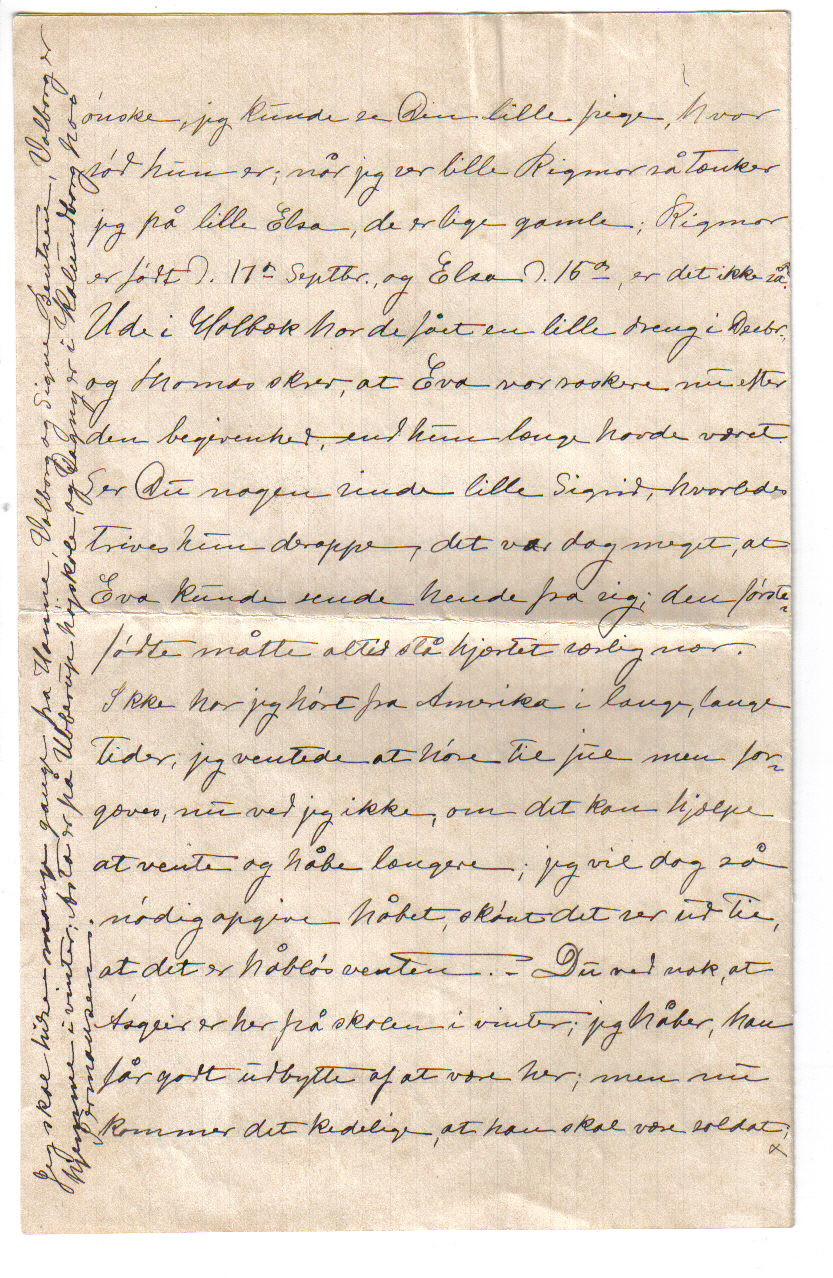 ónske, jeg kunde se Din lille pige, hvor
sód hun er; når jeg ser lille Rigmor så tænker
jeg på lille Elsa, de er lige gamle; Rigmor
er født d. 17de Septbr., og Elsa d. 15de, er det ikke så?
Ude i Holbæk har de fået en lille dreng i Decbr.,
og Thomas skrev, at Eva var raskere nu efter
den begivenhed, end hun længe havde været
Ser Du nogen sinde lille Sigrid, hvorledes
trives hun deroppe, det var dog meget, at
Eva kunde sende hende fra sig; den første-
fódte måtte altid stå hjertet særlig nær.
Ikke har jeg hórt fra Amerika i lange, lange
tider; jeg ventede at hóre til jul men for-
gæves, nu ved jeg ikke, om det kan hjælpe
at vente og håbe længere; jeg vil dog så
nódig opgive håbet, skónt det ser ud til,
at det er håblós venten. – Du ved nok, at
Ásgeir er her på skolen i vinter; jeg håber, han
får godt udbytte af at være her; men nu
kommer det kedelige, at han skal være soldat;
x
Jeg skal hilse mange gange fra Hanne, Valborg og Signe Bentsen, Valborg er
hjemme i vinter; Asta er på Ubberup hójskole, og Dagny er i Kalundborg hos
Hermansen.